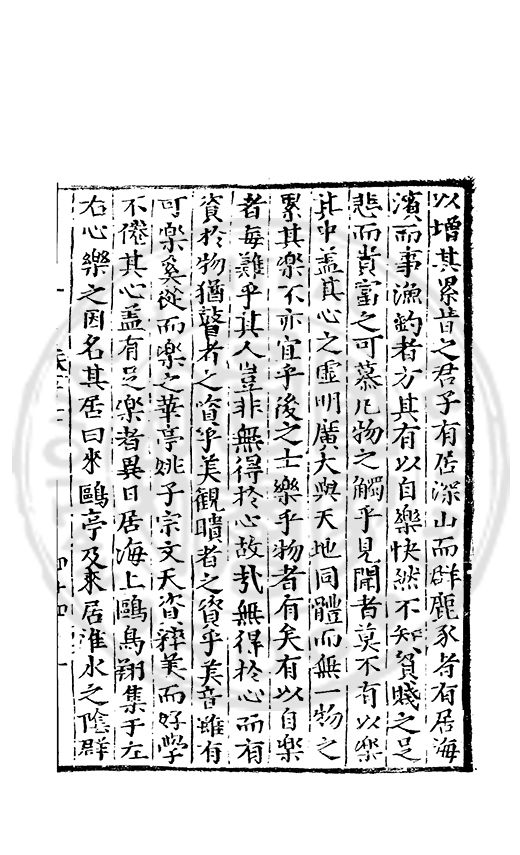 以增其累昔之君子有居深山而群鹿豕者有居海
濱而事漁釣者方其有以自樂快然不知貧賤之足
悲而貴富之可慕凡物之觸乎見聞者莫不有以樂
其中盖其心之虛明廣大與天地同體而無一物之
累其樂不亦宜乎後之士樂乎物者有矣有以自樂
者每難乎其人豈非無得扵心故㢤無得扵心而有
資扵物猶瞽者之資乎美觀聵者之資乎美音雖有
可樂奚從而樂之華亭姚子宗文天資粹美而好學
不倦其心盖有足樂者異日居海上鷗鳥翔集于左
右心樂之因名其居曰來鷗亭及來居淮水之陰群